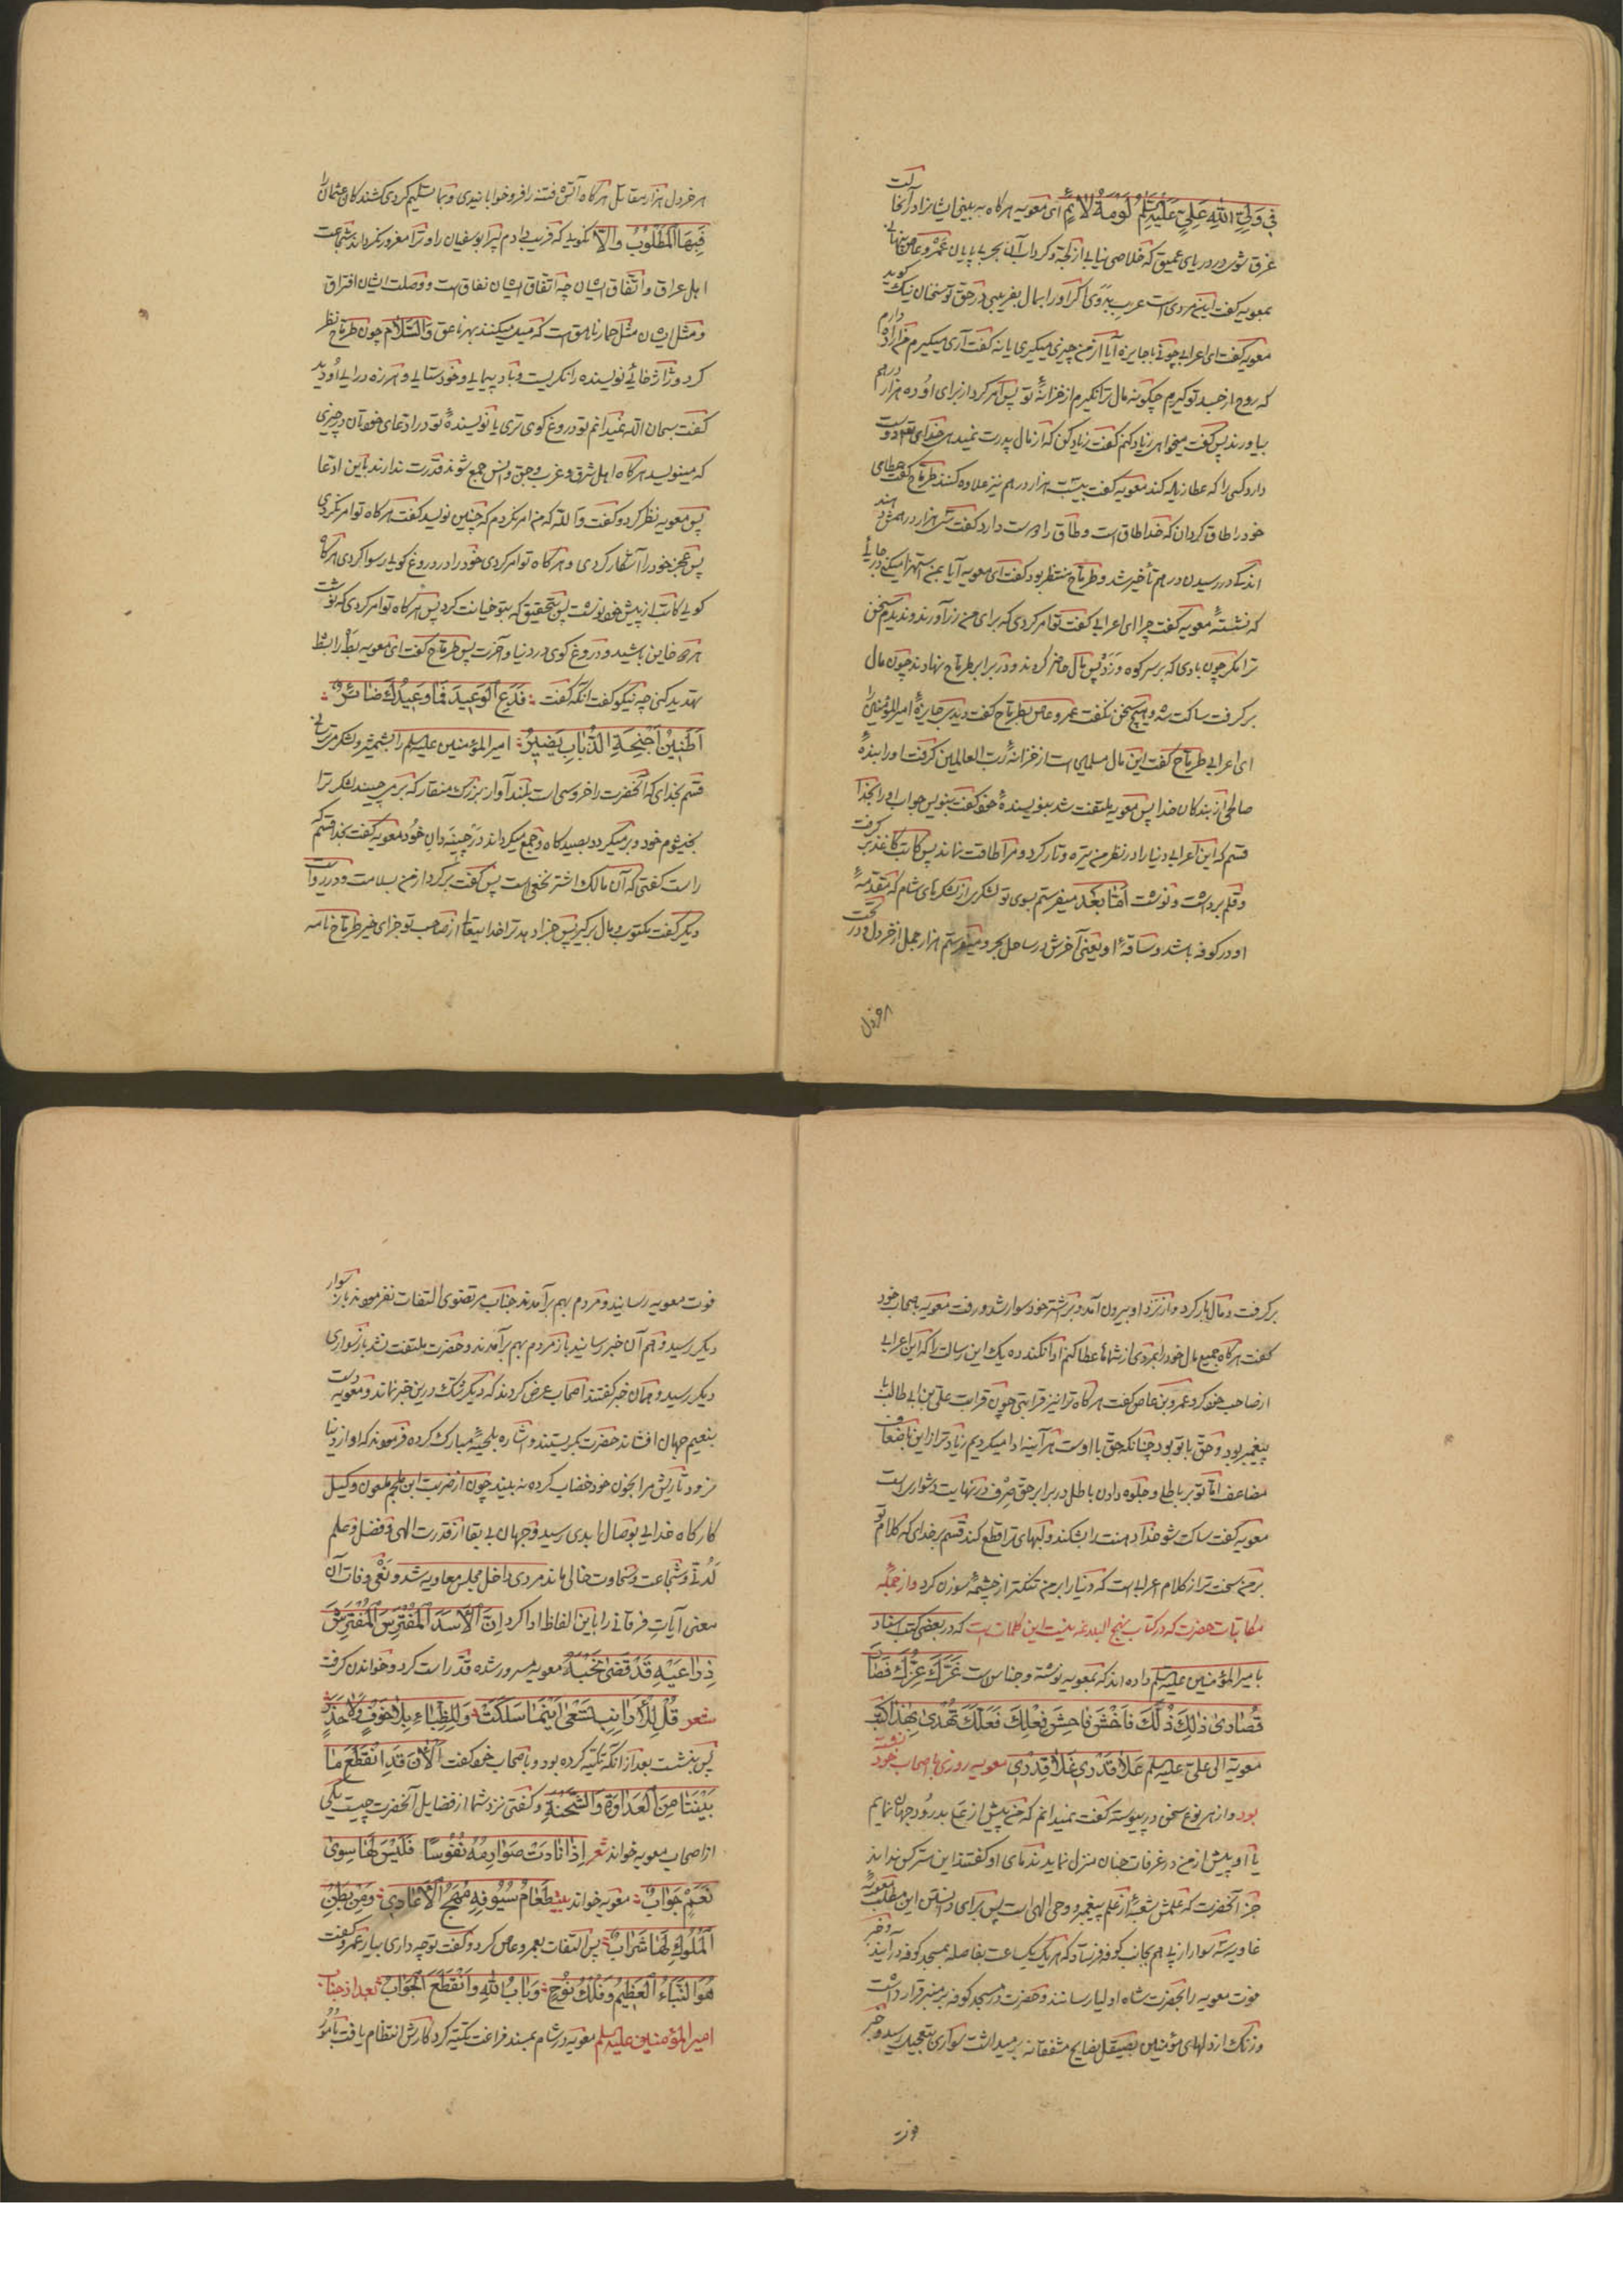 فی ولیّ اللهِ علیٍّ علیه‌السلم لومةُ لائمٍ ای معویه هرگاه به بینی ایشانرا در آنجا گفت
غرق شوی در دریای عمیق که خلاصی نیابی از لجّه و گرداب آن بحر بی پایان عمرو عاص
بمعویه گفت این مردی است عرب بدوی اگر او را بمال بفریبی در حق تو سخنان نیک گوید
معویه گفت ای اعرابی چونی با جایزه آیا از من چیزی میگیری یا نه گفت آری میگیرم من اراده دارم
که روح از جسد تو گیرم چگونه مال ترا نگیرم از خزانهٔ تو پس امر کرد از برای او ده هزار درهم
بیاورند پس گفت میخواهی زیاد کنم گفت زیاد کن که از مال پدرت نمیدهی خدای تعالی دوست
دارد کسی را که عطا زیاد کند معویه گفت بیست هزار درهم نیز علاوه کنند طرماح گفت عطای
خود را طاق گردان که خدا طاق است و طاق را دوست دارد گفت سی هزار درهمش دهند
اندکی در رسیدن درهم تأخیر شد و طرماح منتظر بود گفت ای معویه آیا بمن استهزا میکنی در جائی
که نشستهٔ معویه گفت چرا ای اعرابی گفت تو امر کردی که برای من زر آورند و ندیدم سخن
ترا مگر چون بادی که بر سر کوه وزد پس مال حاضر کردند و در برابر طرماح نهادند چون مال
برگرفت ساکت شد و هیچ سخن نگفت عمرو عاص بطرماح گفت دیدی جایزهٔ امیرالمؤمنین را
ای اعرابی طرماح گفت این مال مسلمین است از خزانهٔ رب العالمین گرفت او را بندهٔ
صالحی از بندکان خدا پس معویه ملتفت شد بنویسندهٔ خود گفت بنویس جواب او را بخدا
قسم که این اعرابی دنیا را در نظر من تیره و تار کرد و مرا طاقت نماند پس کاتب کاغذ بر گرفت
و قلم برداشت و نوشت اما بعد میفرستم بسوی تو لشکری از لشکرهای شام که مقدمهٔ
او در کوفه باشد و ساقهٔ او یعنی آخرش در ساحل بحر و میفرستم هزار جمل از خردل و در تحت
هر خردل
هر خردل هزار مقاتل هرگاه آتش فتنه را فرو خوابانیدی و بما تسلیم کردی کشندکان عثمان را
فبها المطلوب والّا نگوید که فریب دادم پسر ابوسفیان را و ترا مغرور نگرداند شجاعت
اهل عراق و اتفاق ایشان چه اتفاق ایشان نفاق است و وصلت ایشان افتراق
و مثل ایشان مثل حمار ناهق است که میل میکنند بهر ناعق والسّلام چون طرماح نظر
کرد و ژاژخائی نویسنده را نگریست و باد پیمایی و خودستایی و هرزه درایی او دید
گفت سبحان الله نمیدانم تو دروغ گوی تری یا نویسندهٔ تو در ادعای خود آن در چیزی
که مینویسد هرگاه اهل شرق و غرب و جن و انس جمع شوند قدرت ندارند باین ادعا
پس معویه نظر کرد و گفت والله که من امر نکردم که چنین نویسد گفت هرگاه تو امر نکردی
پس عجز خود را آشکار کردی و هرگاه تو امر کردی خود را در دروغ کویی رسوا کردی هرگاه
کویی کاتب از پیش خود نوشت پس بتحقیق که بتو خیانت کرد پس هرگاه تو امر کردی که نوشت
هردو خاین باشید و دروغ کوی در دنیا و آخرت پس طرماح گفت ای معویه بط را بشط
تهدید کنی چه نیکو گفت آنکه گفت فدع الوعید فما وعیدك ضائر
اطنین اجنحة الذباب یضیر امیرالمؤمنین علیه‌السلم را بشمشیر و لشکر میترسانی
قسم بخدای که آنحضرت را خروسی است بلند آواز بزرک منقار که بر می چیند لشکر ترا
بخیشوم خود و بر میگردد بصید کاه و جمع میگرداند در چینه دان خود معویه گفت بخدا قسم که
راست گفتی که آن مالک اشتر نخعی است پس گفت برگرد از من بسلامت و در روایت
دیگر گفت مکتوب و مال برگیر پس جزا دهد ترا خدا بتعالی از صاحب تو جزای خیر طرماح نامه
برگرفت و مال بار کرد و از نزد او بیرون آمد و بر شتر خود سوار شد و رفت معویه باصحاب خود
گفت هرگاه جمیع مال خود را بمردی از شماها عطا کنم ادا نکند ده یک این رسالت را که این اعرابی
از صاحب خود کرد عمرو بن عاص گفت هرگاه ترا نیز قرابتی چون قرابت علی بن ابی طالب با
پیغمبر بود و حق با تو بود چنانکه حق با اوست هر آینه ادا میکردیم زیادتر از این باضعاف
مضاعف امّا تو بر باطلی و جلوه دادن باطل در برابر حق صرف در نهایت دشوار است
معویه گفت ساکت شو خدا دهنت را بشکند و لبهای ترا قطع کند قسم بر خدای که کلام تو
بر من سخت تر از کلام اعرابی است که دنیا را بر من تنکتر از چشمهٔ سوزن کرد و از جمله
مکاتبات حضرت که در کتاب نهج البلاغه نیست این کلمات است که در بعضی کتب اسناد
با میرالمؤمنین علیه‌السلم داده اند که بمعویه نوشته و جناس است غرّك عزّك فصار
قصاری ذلك ذلّك فاخش فاحش فعلك فعلّك تهدی بهذا کتب
معویة الی علیّ علیه‌السلم علا قدری غلا قدری معویه روزی با اصحاب خود نشسته
بود و از هر نوع سخن در پیوسته گفت نمیدانم که من پیش از علی بدرود جهان نمایم
یا او پیش از من در غرفات جنان منزل نماید ندمای او گفتند این سر کس نداند
جز آنحضرت که علمش شعبهٔ از علم پیغمبر و وحی الهی است پس برای دانستن این مطلب معویهٔ
غاویه سه سوار از پی هم بجانب کوفه فرستاد که هر یک یکساعت بفاصله بمسجد کوفه در آیند و خبر
موت معویه را بحضرت شاه اولیا رسانند و حضرت در مسجد کوفه بر منبر قرار داشت
و زنک از دلهای مؤمنین بصیقل نصایح مشفقانه بر میداشت سواری بتعجیل رسید و خبر
فوت
فوت معویه رسانید و مردم بهم برآمدند جناب مرتضوی التفات نفرمودند باز سوار
دیگر رسید و هم آن خبر رسانید باز مردم بهم برآمدند و حضرت ملتفت نشد باز سواری
دیگر رسید و همان خبر گفتند اصحاب عرض کردند که دیگر شک در این خبر نماند و معویه دست
بنعیم جهان افشاند حضرت بگریستند و اشاره بلحیهٔ مبارک کرده فرمودند که او از دنیا
نرود تا ریش مرا بخون خود خضاب کرده نه بیند چون از ضربت ابن ملجم ملعون وکیل
کارگاه خدایی بوصال ابدی رسید و جهان بی بقا از قدرت الهی و فضل و علم
لدنّی و شجاعت و سخاوت خالی ماند مردی داخل مجلس معاویه شد و نعی وفات آن
معنی آیات فرقانی را باین الفاظ ادا کرد انّ الاسد المفترس المفترش
ذراعیه قد قضی نحبه معویه مسرور شده قد راست کرد و خواندن گرفت
شعر قل للارانب تسعی اینما سلکت وللظباء بلا خوف ولا حذر
پس بنشست بعد از آنکه تکیه کرده بود و باصحاب خود گفت الآن قد انقطع ما
بیننا من العداوة والشحنة و گفتی نزد شما از فضایل آنحضرت چیست یکی
از اصحاب معویه خواند شعر اذا نادت صوارمه نفوسا فلیس لها سوی
نعم جواب معویه خواند بیت طعام سیوفه مهج الاعادی ومن بطن
الملوك لها شراب پس التفات بعمرو عاص کرد و گفت تو چه داری بیار عمرو گفت
هو النّباء العظیم وفلك نوح وباب الله وانقطع الجواب بعد از جناب
امیرالمؤمنین علیه‌السلم معویه در شام بمسند فراغت تکیه کرد کارش انتظام یافت